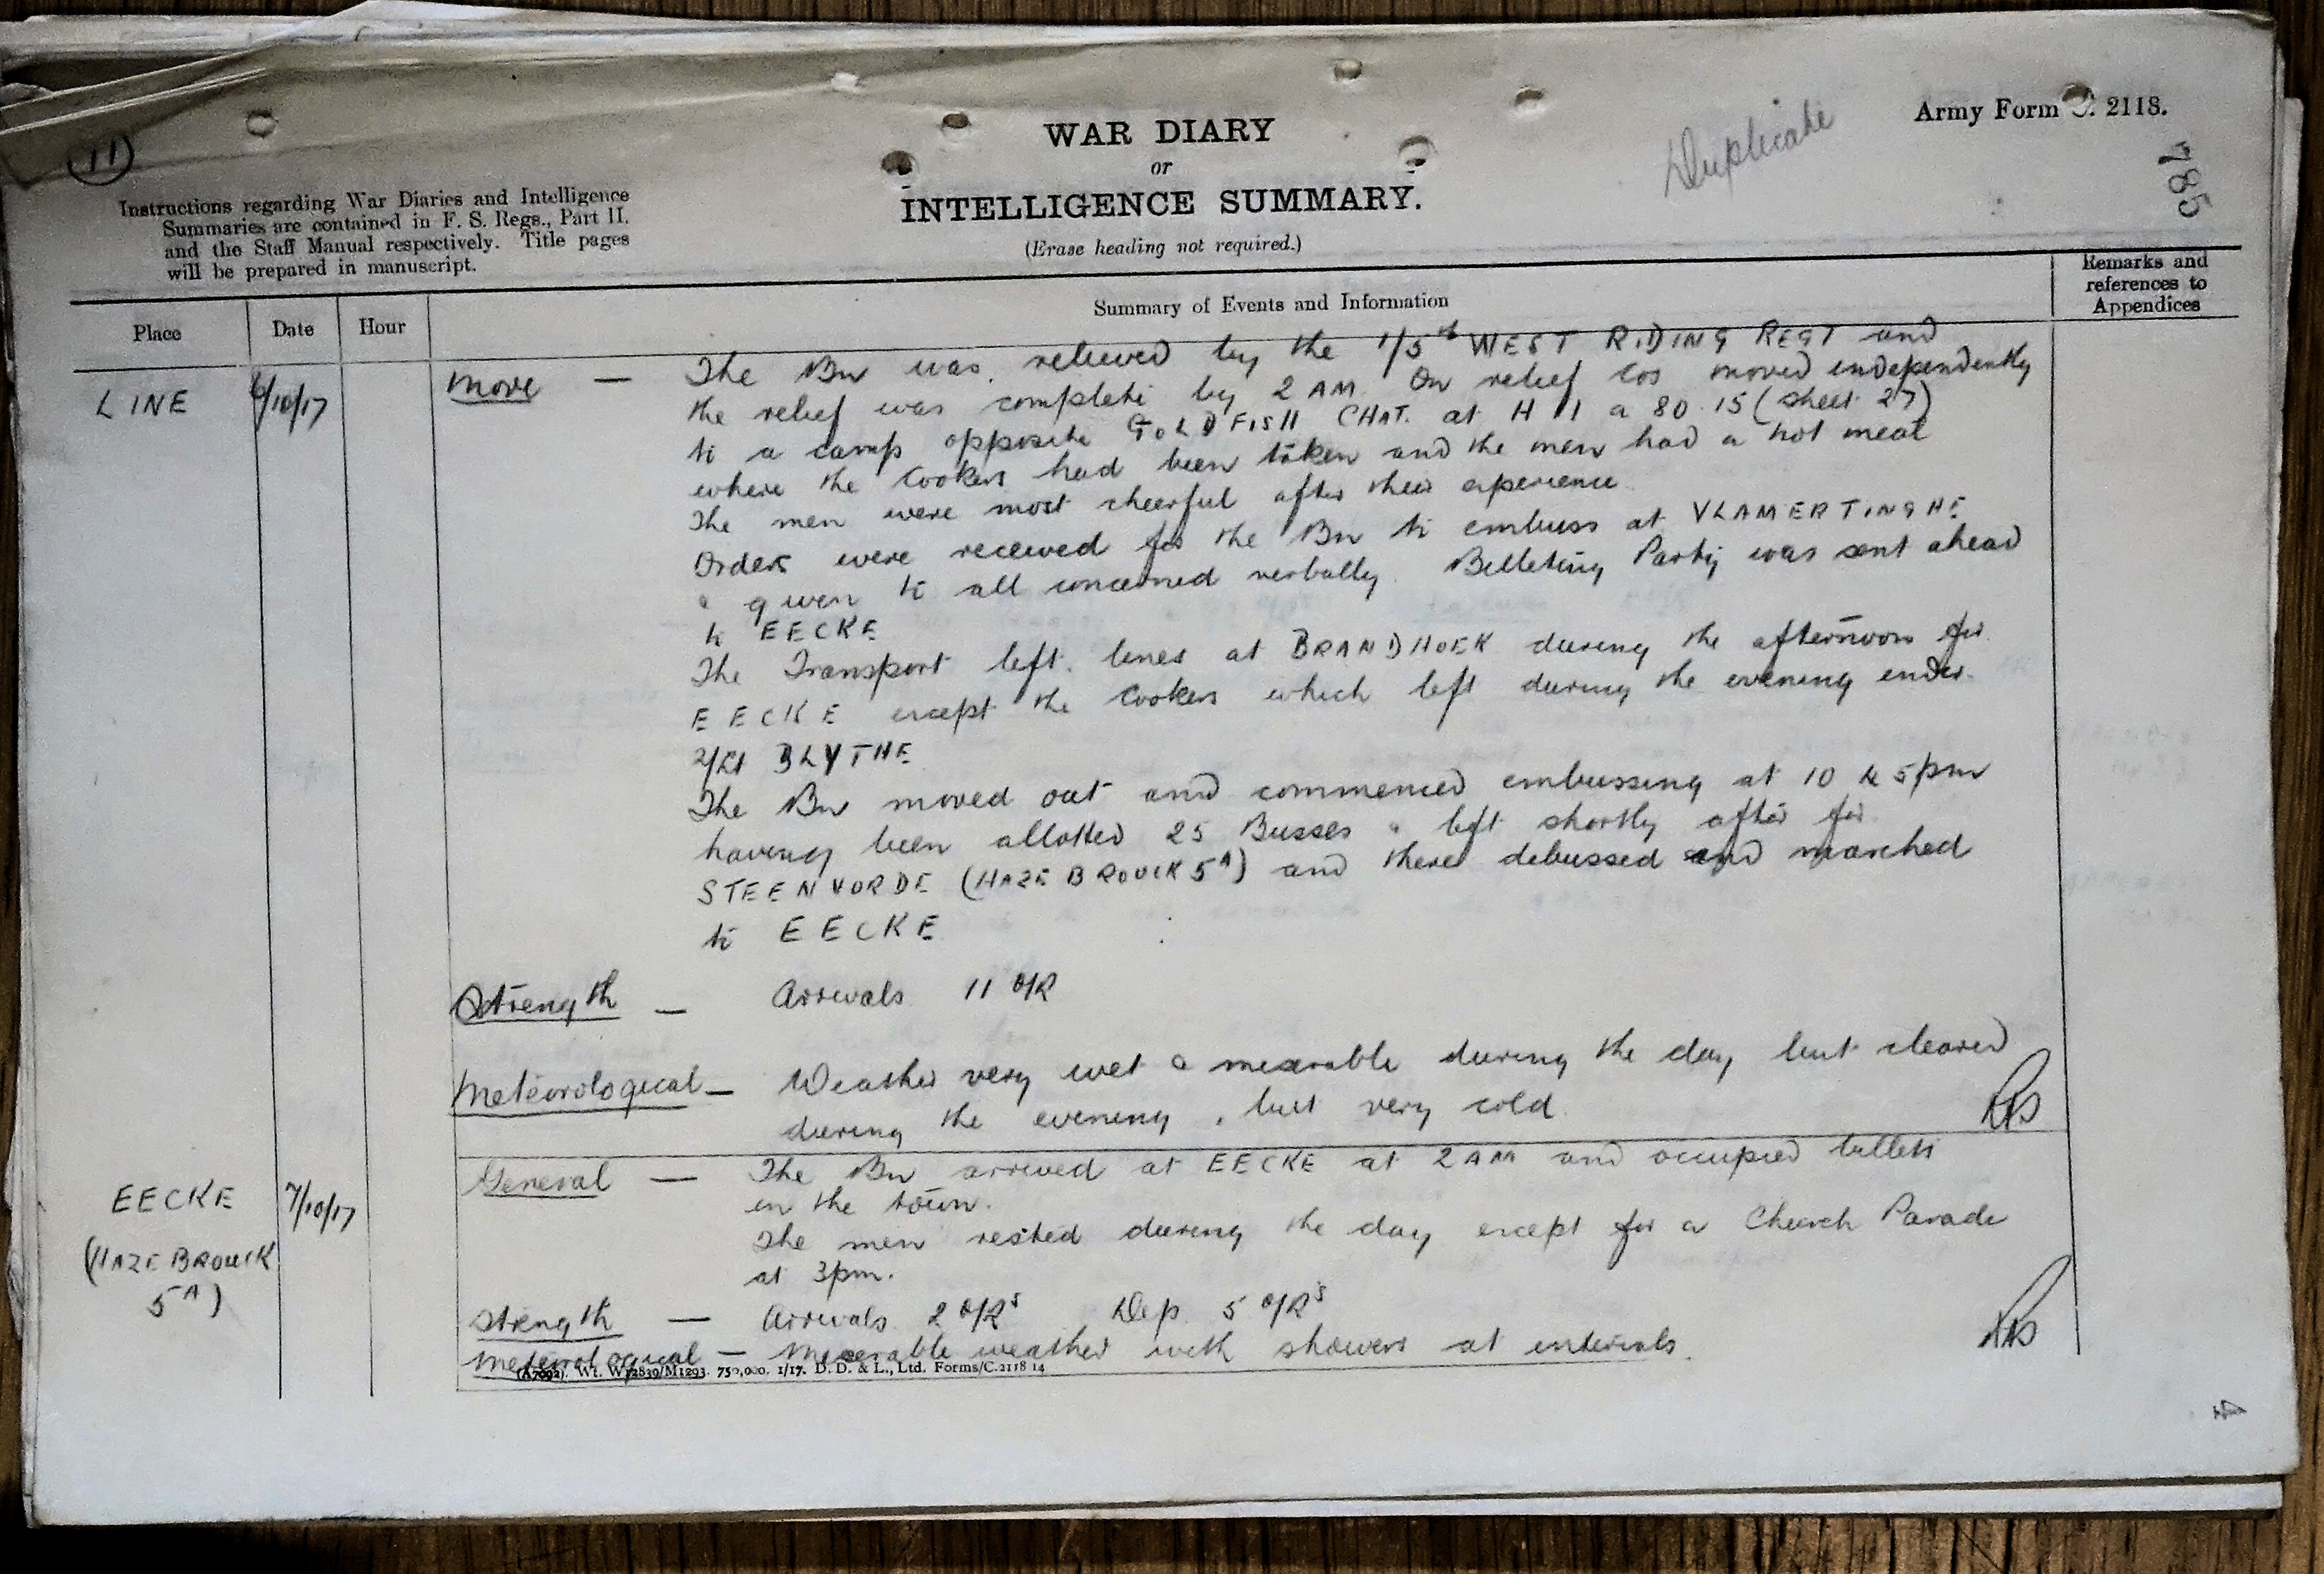 11
Duplicate
Army Form C. 2118.
785
WAR DIARY
or
INTELLIGENCE SUMMARY.
(Erase heading not required.)
Instructions regarding War Diaries and Intelligence
Summaries are contained in F. S. Regs., Part II.
and the Staff Manual respectively. Title pages
will be prepared in manuscript.
Place
Date
Hour
Summary of Events and Information
Remarks and
references to
Appendices
LINE 6/10/17 Move — The Bn was relieved by the 1/5th WEST RIDING REGT and
the relief was complete by 2 AM. On relief Cos moved independently
to a camp opposite GOLDFISH CHAT. at H 11 a 80.15 (sheet 27)
where the Cookers had been taken and the men had a hot meal
The men were most cheerful after their experience
Orders were received for the Bn to embuss at VLAMERTINGHE
& given to all concerned verbally. Billeting Party was sent ahead
to EECKE
The Transport left lines at BRANDHOEK during the afternoon for
EECKE except the Cookers which left during the evening under
2/Lt BLYTHE
The Bn moved out and commenced embussing at 10 45pm
having been allotted 25 Busses & left shortly after for
STEENVORDE (HAZEBROUCK 5A) and there debussed and marched
to EECKE
Strength — Arrivals 11 O/R
Meteorological — Weather very wet & miserable during the day but cleared
during the evening, but very cold
EECKE 7/10/17 General — The Bn arrived at EECKE at 2 AM and occupied billets
in the town.
(HAZEBROUCK The men rested during the day except for a Church Parade
5A) at 3pm.
Strength — Arrivals 2 O/Rs Dep. 5 O/Rs
Meteorological — Miserable weather with showers at intervals.
(A7092). Wt. W12839/M1293. 750,000. 1/17. D. D. & L., Ltd. Forms/C.2118 14
4